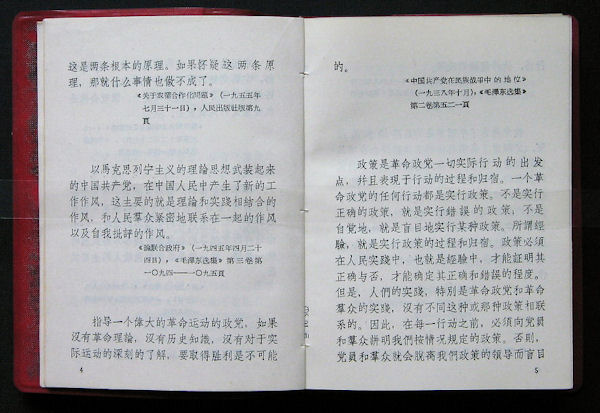 这是两条根本的原理。如果怀疑这两条原
理，那就什么事情也做不成了。
《关于农业合作化问题》（一九五五年
七月三十一日），人民出版社版第九
頁
以马克思列宁主义的理論思想武装起来
的中国共产党，在中国人民中产生了新的工
作作风，这主要的就是理論和实践相结合的
作风，和人民羣众紧密地联系在一起的作风
以及自我批評的作风。
《論联合政府》（一九四五年四月二十
四日），《毛澤东选集》第三卷第
一〇九四——一〇九五頁
指导一个偉大的革命运动的政党，如果
沒有革命理論，沒有历史知識，沒有对于实
际运动的深刻的了解，要取得胜利是不可能
4
的。
《中国共产党在民族战爭中的地位》
（一九三八年十月），《毛澤东选集》
第二卷第五二一頁
政策是革命政党一切实际行动的出发
点，并且表現于行动的过程和归宿。一个革
命政党的任何行动都是实行政策。不是实行
正确的政策，就是实行錯誤的政策，不是
自觉地，就是盲目地实行某种政策。所謂經
驗，就是实行政策的过程和归宿。政策必須
在人民实踐中，也就是經驗中，才能証明其
正确与否，才能确定其正确和錯誤的程度。
但是，人們的实踐，特別是革命政党和革命
羣众的实踐，沒有不同这种或那种政策相联
系的。因此，在每一行动之前，必須向党員
和羣众講明我們按情况規定的政策。否則，
党員和羣众就会脫离我們政策的領导而盲目
5